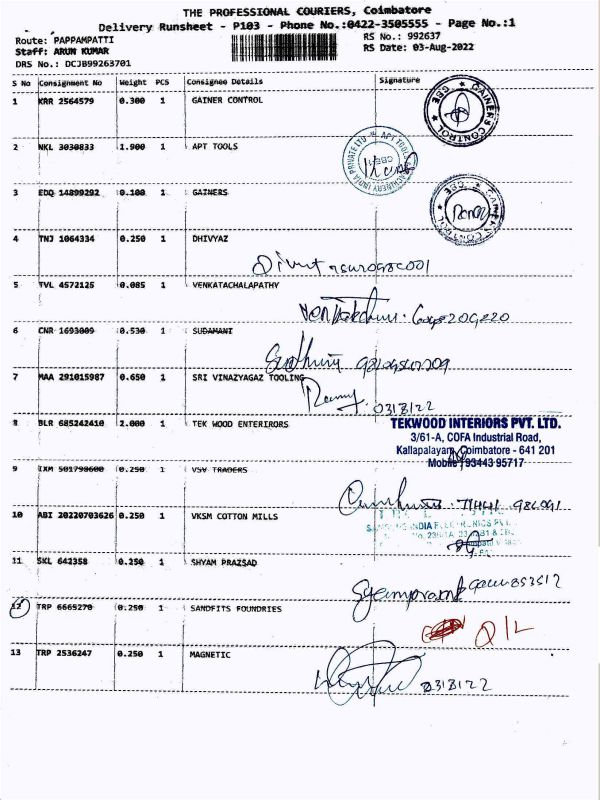 THE PROFESSIONAL COURIERS, Coimbatore
Delivery Runsheet - P103 - Phone No.:0422-3505555 - Page No.:1
Route: PAPPAMPATTI
RS No.: 992637
Staff: ARUN KUMAR
RS Date: 03-Aug-2022
DRS No.: DCJB99263701
S No Consignment No Weight PCS Consignee Details Signature
1 KRR 2564579 0.300 1 GAINER CONTROL
GAINERS CONTROL ★ CBE ★
2 NKL 3030833 1.900 1 APT TOOLS
3 EDQ 14899292 0.100 1 GAINERS
4 TNJ 1064334 0.250 1 DHIVYAZ
5 TVL 4572125 0.085 1 VENKATACHALAPATHY
6 CNR 1693009 0.530 1 SUDAMANI
7 MAA 291015987 0.650 1 SRI VINAZYAGAZ TOOLING
03/8/22
8 BLR 685242410 2.000 1 TEK WOOD ENTERIRORS
TEKWOOD INTERIORS PVT. LTD.
3/61-A, COFA Industrial Road,
Kallapalayam, Coimbatore - 641 201
Mobile : 93443 95717
9 IXM 501790600 0.250 1 VSV TRADERS
10 ABI 20220703626 0.250 1 VKSM COTTON MILLS
11 SKL 642358 0.250 1 SHYAM PRAZSAD
12 TRP 6665270 0.250 1 SANDFITS FOUNDRIES
O/L
13 TRP 2536247 0.250 1 MAGNETIC
03/8/22